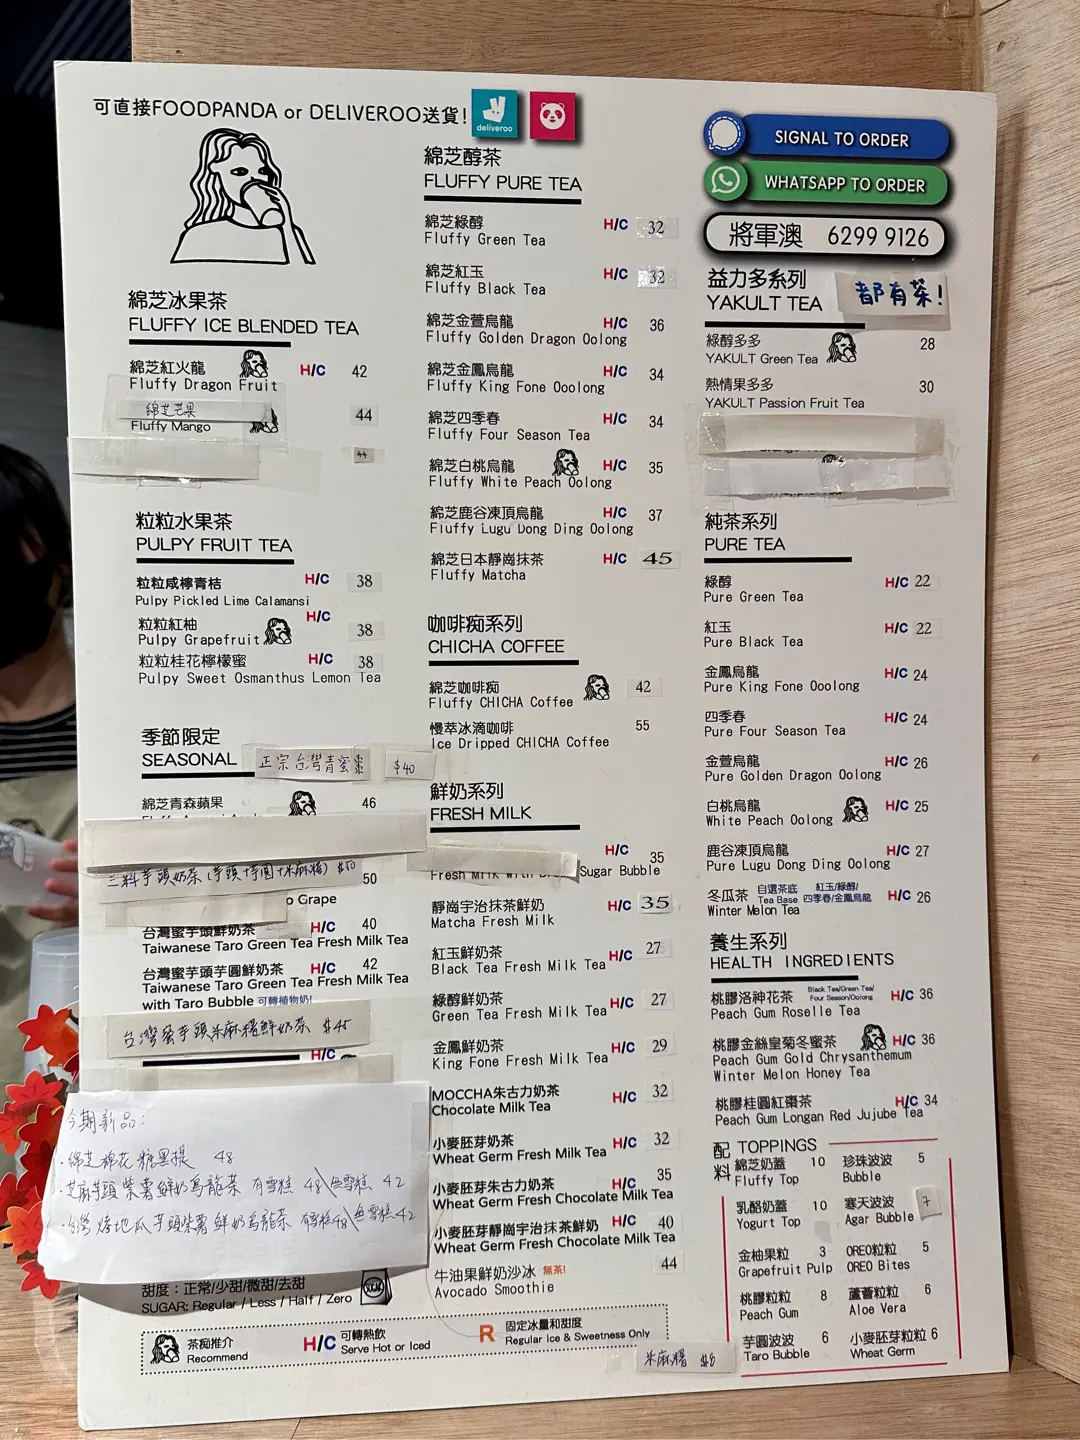 可直接FOODPANDA or DELIVEROO送貨!
deliveroo
綿芝冰果茶
FLUFFY ICE BLENDED TEA
綿芝紅火龍 H/C 42
Fluffy Dragon Fruit
綿芝芒果 44
Fluffy Mango
44
粒粒水果茶
PULPY FRUIT TEA
粒粒咸檸青桔 H/C 38
Pulpy Pickled Lime Calamansi
粒粒紅柚 H/C 38
Pulpy Grapefruit
粒粒桂花檸檬蜜 H/C 38
Pulpy Sweet Osmanthus Lemon Tea
季節限定
SEASONAL
正宗台灣青蜜棗 $40
綿芝青森蘋果 46
三料芋頭奶茶(芋頭+芋圓+米麻糬) $50
50
o Grape
台灣蜜芋頭鮮奶茶 H/C 40
Taiwanese Taro Green Tea Fresh Milk Tea
台灣蜜芋頭芋圓鮮奶茶 H/C 42
Taiwanese Taro Green Tea Fresh Milk Tea
with Taro Bubble 可轉植物奶!
台灣蜜芋頭米麻糬鮮奶茶 $45
H/C
今期新品:
·綿芝棉花糖黑糯 48
·芝麻芋頭紫薯鮮奶烏龍茶 有雪糕 48\無雪糕 42
·台灣烤地瓜芋頭紫薯鮮奶烏龍茶 有雪糕48\無雪糕42
甜度：正常/少甜/微甜/去甜
SUGAR: Regular / Less / Half / Zero
茶痴推介
Recommend
H/C 可轉熱飲
Serve Hot or Iced
R 固定冰量和甜度
Regular Ice & Sweetness Only
綿芝醇茶
FLUFFY PURE TEA
綿芝綠醇 H/C 32
Fluffy Green Tea
綿芝紅玉 H/C 32
Fluffy Black Tea
綿芝金萱烏龍 H/C 36
Fluffy Golden Dragon Oolong
綿芝金鳳烏龍 H/C 34
Fluffy King Fone Ooolong
綿芝四季春 H/C 34
Fluffy Four Season Tea
綿芝白桃烏龍 H/C 35
Fluffy White Peach Oolong
綿芝鹿谷凍頂烏龍 H/C 37
Fluffy Lugu Dong Ding Oolong
綿芝日本靜崗抹茶 H/C 45
Fluffy Matcha
咖啡痴系列
CHICHA COFFEE
綿芝咖啡痴 42
Fluffy CHICHA Coffee
慢萃冰滴咖啡 55
Ice Dripped CHICHA Coffee
鮮奶系列
FRESH MILK
H/C 35
Sugar Bubble
靜崗宇治抹茶鮮奶 H/C 35
Matcha Fresh Milk
紅玉鮮奶茶 H/C 27
Black Tea Fresh Milk Tea
綠醇鮮奶茶 H/C 27
Green Tea Fresh Milk Tea
金鳳鮮奶茶 H/C 29
King Fone Fresh Milk Tea
MOCCHA朱古力奶茶 H/C 32
Chocolate Milk Tea
小麥胚芽奶茶 H/C 32
Wheat Germ Fresh Milk Tea
小麥胚芽朱古力奶茶 H/C 35
Wheat Germ Fresh Chocolate Milk Tea
小麥胚芽靜崗宇治抹茶鮮奶 H/C 40
Wheat Germ Fresh Chocolate Milk Tea
牛油果鮮奶沙冰 無茶! 44
Avocado Smoothie
SIGNAL TO ORDER
WHATSAPP TO ORDER
將軍澳 6299 9126
益力多系列
YAKULT TEA
都有茶!
綠醇多多 28
YAKULT Green Tea
熱情果多多 30
YAKULT Passion Fruit Tea
純茶系列
PURE TEA
綠醇 H/C 22
Pure Green Tea
紅玉 H/C 22
Pure Black Tea
金鳳烏龍 H/C 24
Pure King Fone Ooolong
四季春 H/C 24
Pure Four Season Tea
金萱烏龍 H/C 26
Pure Golden Dragon Oolong
白桃烏龍 H/C 25
White Peach Oolong
鹿谷凍頂烏龍 H/C 27
Pure Lugu Dong Ding Oolong
冬瓜茶 自選茶底 Tea Base 紅玉/綠醇/四季春/金鳳烏龍 H/C 26
Winter Melon Tea
養生系列
HEALTH INGREDIENTS
桃膠洛神花茶 Black Tea/Green Tea/ Four Season/Oolong H/C 36
Peach Gum Roselle Tea
桃膠金絲皇菊冬蜜茶 H/C 36
Peach Gum Gold Chrysanthemum
Winter Melon Honey Tea
桃膠桂圓紅棗茶 H/C 34
Peach Gum Longan Red Jujube Tea
配料 TOPPINGS
綿芝奶蓋 10 珍珠波波 5
Fluffy Top Bubble
乳酪奶蓋 10 寒天波波 7
Yogurt Top Agar Bubble
金柚果粒 3 OREO粒粒 5
Grapefruit Pulp OREO Bites
桃膠粒粒 8 蘆薈粒粒 6
Peach Gum Aloe Vera
芋圓波波 6 小麥胚芽粒粒 6
Taro Bubble Wheat Germ
米麻糬 $8